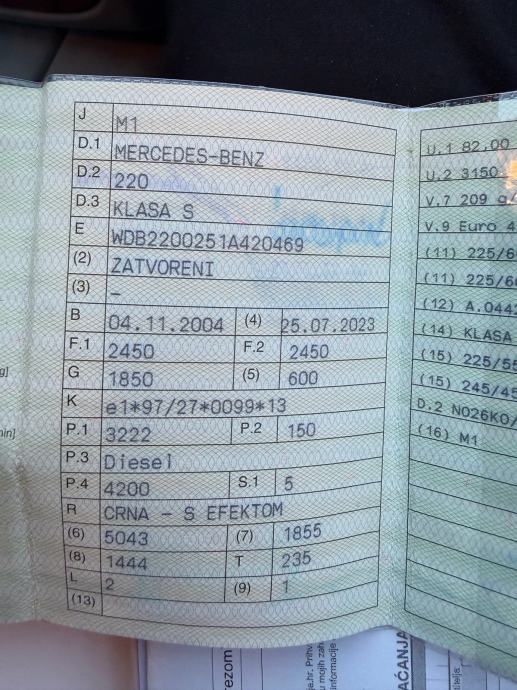 J M1
D.1 MERCEDES-BENZ
D.2 220
D.3 KLASA S
E WDB2200251A420469
(2) ZATVORENI
(3) –
B 04.11.2004 (4) 25.07.2023
F.1 2450 F.2 2450
G 1850 (5) 600
K e1*97/27*0099*13
P.1 3222 P.2 150
P.3 Diesel
P.4 4200 S.1 5
R CRNA – S EFEKTOM
(6) 5043 (7) 1855
(8) 1444 T 235
L 2 (9) 1
(13)
U.1 82,00
U.2 3150
V.7 209 g/
V.9 Euro 4
(11) 225/6
(11) 225/6
(12) A.044
(14) KLASA
(15) 225/55
(15) 245/45
D.2 N026K0/
(16) M1
g]
min]
rezom
ja.hr. Prihv
u mojih zah
informacije
AĆANJA